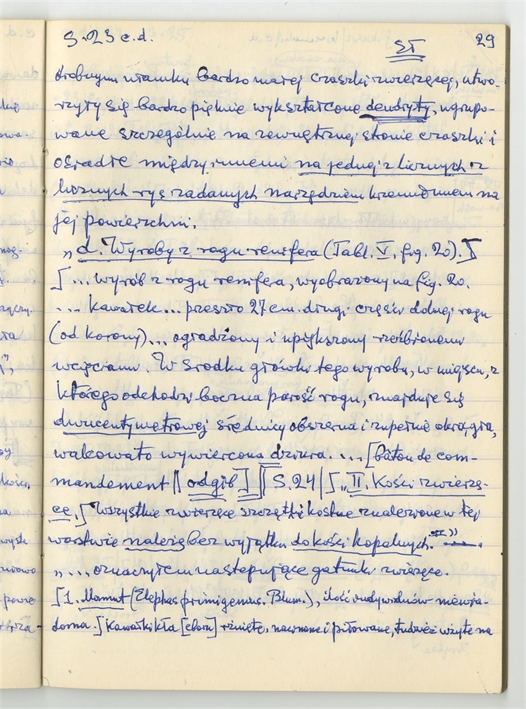 S. 23 c.d. SŁ 29
drobnym ułamku bardzo małej czaszki zwierzęcej, utwo-
rzyły się bardzo pięknie wykształcone dendryty, ugrupo-
wane szczególnie na zewnętrznej stronie czaszki i
osiadłe między innemi na jednej z licznych z
licznych rys zadanych narzędziem krzemiennem na
jej powierzchni.
„d. Wyroby z rogu renifera (Tabl. V, fig. 20).]
[... wyrób z rogu renifera, wyobrażony na fig. 20.
... kawałek ... przeszło 27 cm. długi część dolnej rogu
(od korony) ... ogładzony i upiększony rzeźbionemi
wcięciami. W środku główki tego wyrobu, w miejscu, z
którego odchodzi boczna parość rogu, znajduje się
dwucentymetrowej średnicy obszerna i zupełnie okrągła,
walcowato wywiercona dziura. ... [bâton de com-
mandement || odgib]] || S. 24 | [„II. Kości zwierzę-
ce.] Wszystkie zwierzęce szczątki kostne znalezione w tej
warstwie należą bez wyjątku do kości kopalnych."
„... oznaczyłem następujące gatunki zwierzęce.
[1. Mamut (Elephas primigenius. Blum.), ilość indywiduów niewia-
doma.] Kawałki kła [cłoru] rżnięte, nacinane i piłowane, tudzież wzięte na